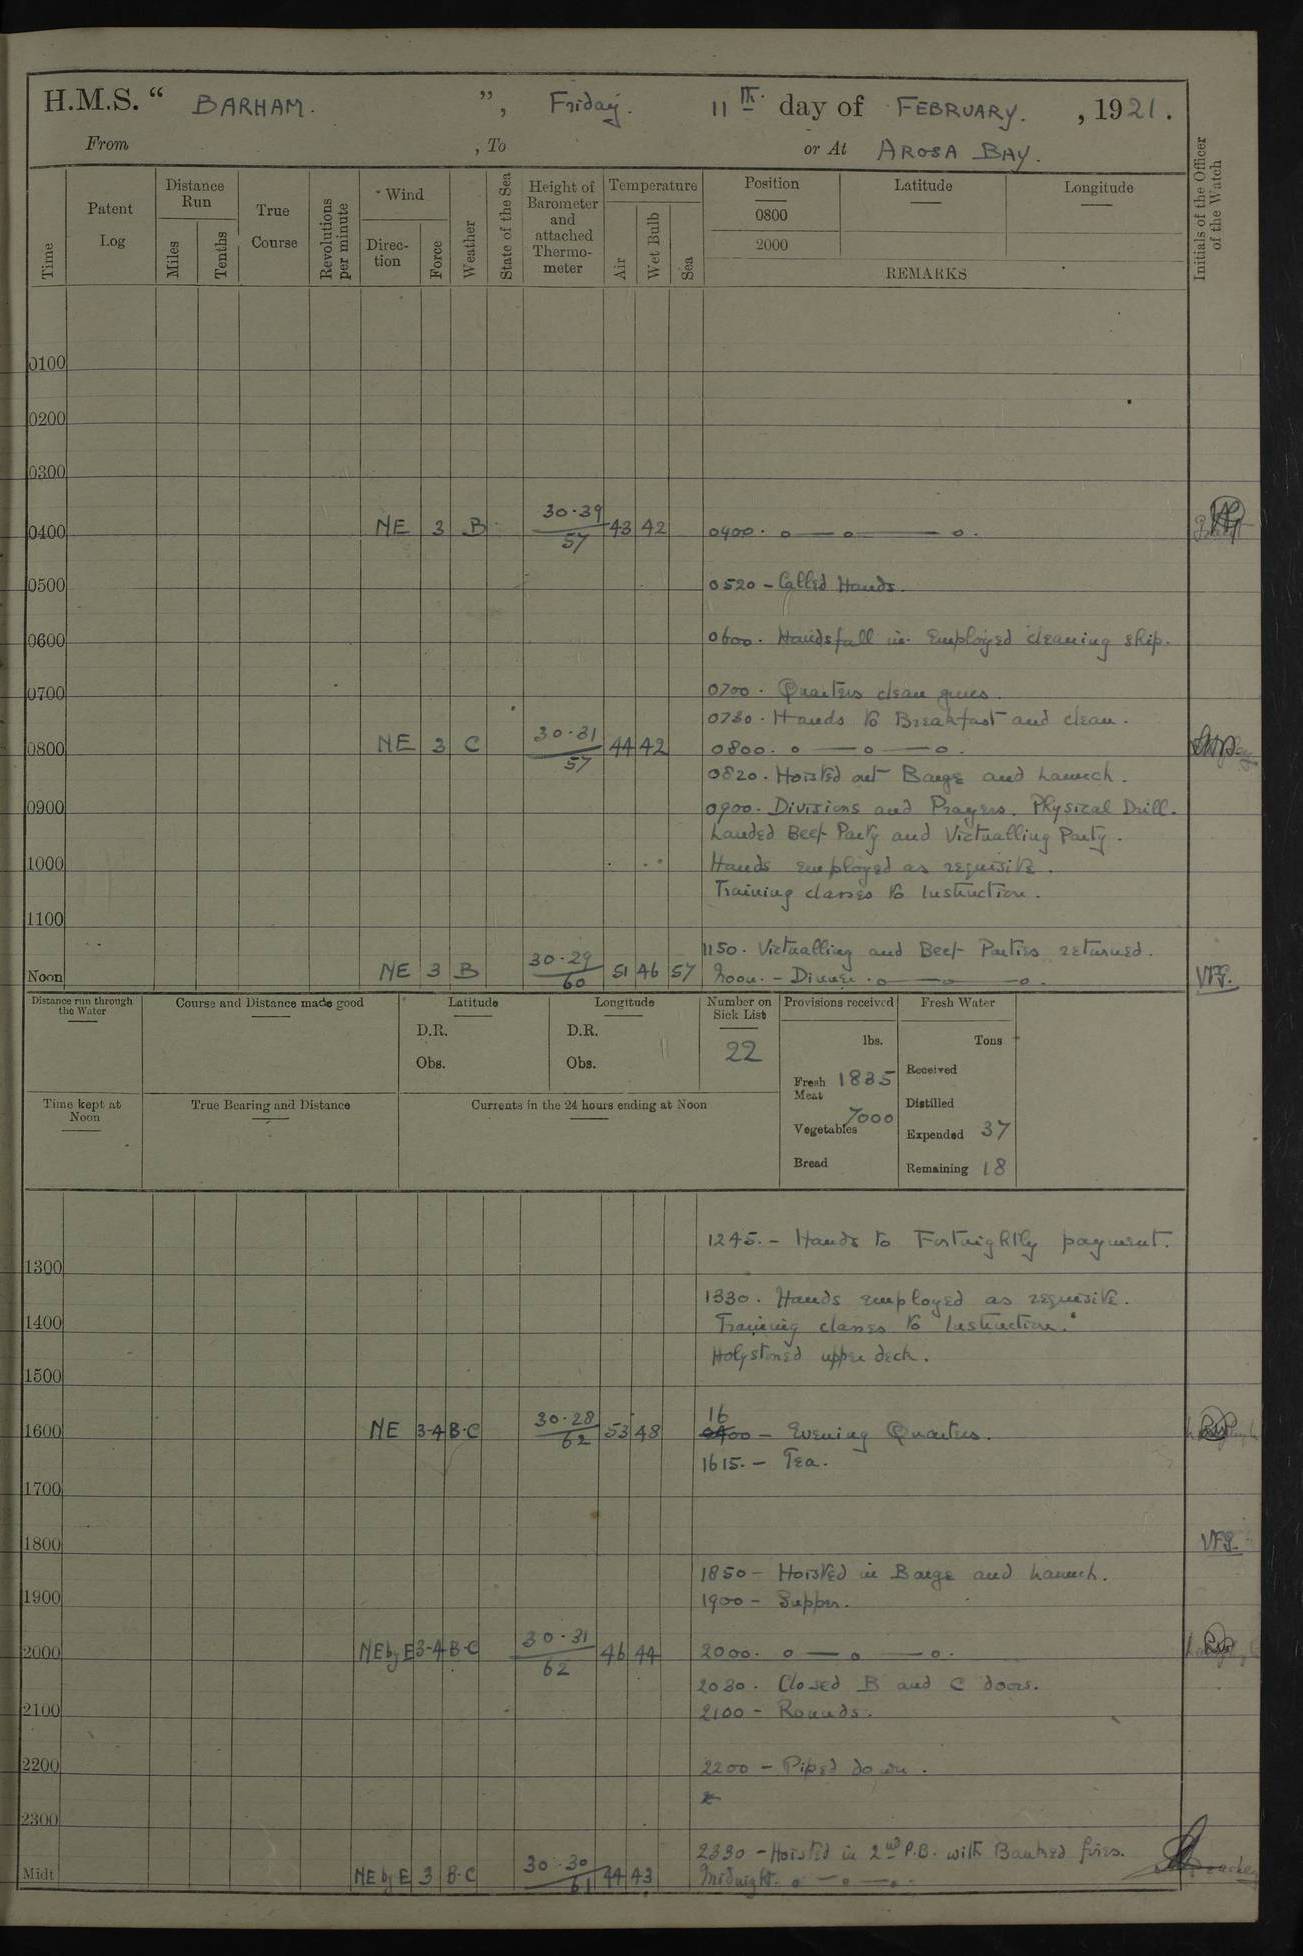 H.M.S. “ BARHAM. ”, Friday. 11th. day of FEBRUARY. , 1921.
From , To or At AROSA BAY.
Time Patent Log Distance Run Miles Tenths True Course Revolutions per minute Wind Direc-tion Force Weather State of the Sea Height of Barometer and attached Thermo-meter Temperature Air Wet Bulb Sea Position 0800 2000 Latitude Longitude REMARKS Initials of the Officer of the Watch
0100
0200
0300
0400 NE 3 B 30.39 57 43 42 0400. o — o — o.
0500 0520 - Called Hands.
0600 0600. Hands fall in. Employed cleaning ship.
0700 0700. Quarters clean guns.
0730. Hands to Breakfast and clean.
0800 NE 3 C 30.31 57 44 42 0800. o — o — o.
0820. Hoisted out Barge and Launch.
0900 0900. Divisions and Prayers. Physical Drill.
Landed Beef Party and Victualling Party.
1000 Hands employed as requisite.
Training classes to Instruction.
1100
1150. Victualling and Beef Parties returned.
Noon NE 3 B 30.29 60 51 46 57 Noon. - Dinner. o — o — o. VFG.
Distance run through the Water Course and Distance made good Latitude Longitude Number on Sick List Provisions received Fresh Water
D.R. D.R. lbs. Tons
22
Obs. Obs. Fresh Meat 1835 Received
Time kept at Noon True Bearing and Distance Currents in the 24 hours ending at Noon Distilled
Vegetables 7000 Expended 37
Bread Remaining 18
1245. - Hands to Fortnightly payment.
1300
1330. Hands employed as requisite.
1400 Training classes to Instruction.
Holystoned upper deck.
1500
1600 NE 3-4 B.C 30.28 62 53 48 1600 - Evening Quarters.
1615. - Tea.
1700
1800 VFG.
1850 - Hoisted in Barge and Launch.
1900 1900 - Supper.
2000 NE by E 3-4 B.C 30.31 62 46 44 2000. o — o — o.
2030. Closed B and C doors.
2100 2100 - Rounds.
2200 2200 - Piped down.
2300
2330 - Hoisted in 2nd P.B. with Banked fires.
Midt NE by E 3 B.C 30.30 61 44 43 Midnight. o — o — .